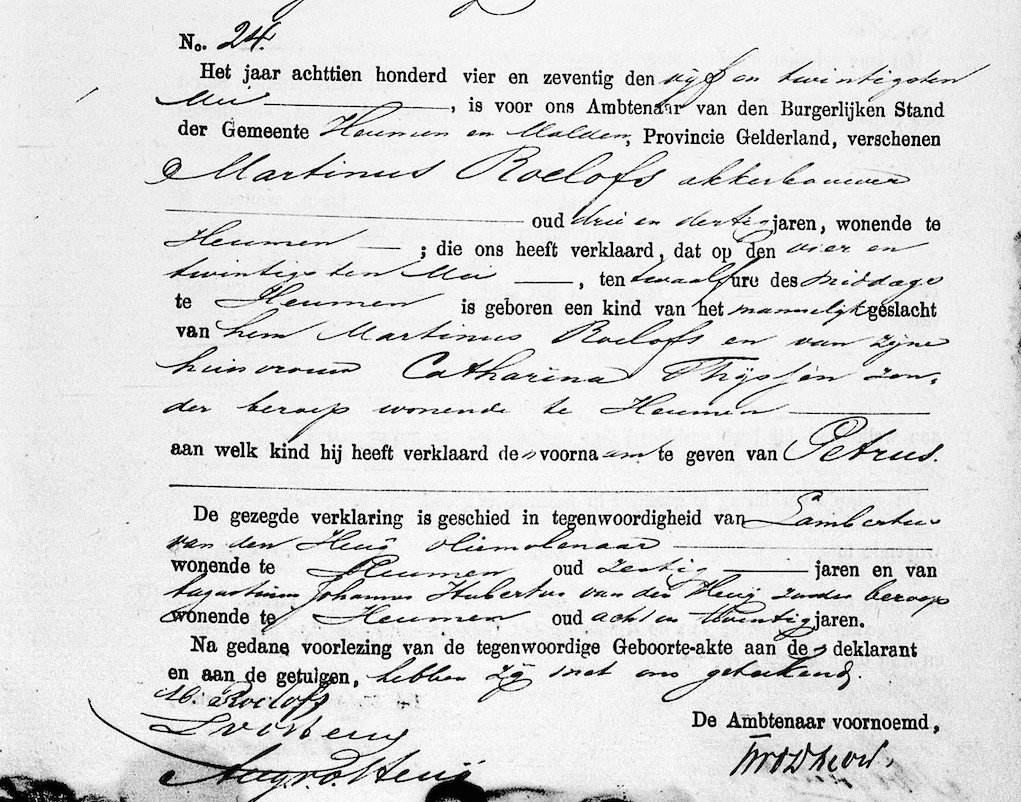 No. 24.
Het jaar achttien honderd vier en zeventig den vijf en twintigsten
Mei, is voor ons Ambtenaar van den Burgerlijken Stand
der Gemeente Heumen en Malden, Provincie Gelderland, verschenen
Martinus Roelofs akkerbouwer
oud drie en dertig jaren, wonende te
Heumen ; die ons heeft verklaard, dat op den vier en
twintigsten Mei, ten twaalf ure des middags
te Heumen is geboren een kind van het mannelijk geslacht
van hem Martinus Roelofs en van zijne
huisvrouw Catharina Thijssen zon-
der beroep wonende te Heumen
aan welk kind hij heeft verklaard den voornaam te geven van Petrus.
De gezegde verklaring is geschied in tegenwoordigheid van Lambertus
van den Heuij oliemolenaar
wonende te Heumen oud zestig jaren en van
Augustinus Johannes Hubertus van den Heuij zonder beroep
wonende te Heumen oud acht en twintig jaren.
Na gedane voorlezing van de tegenwoordige Geboorte-akte aan den deklarant
en aan de getuigen, hebben zij met ons geteekend.
M. Roelofs
De Ambtenaar voornoemd,